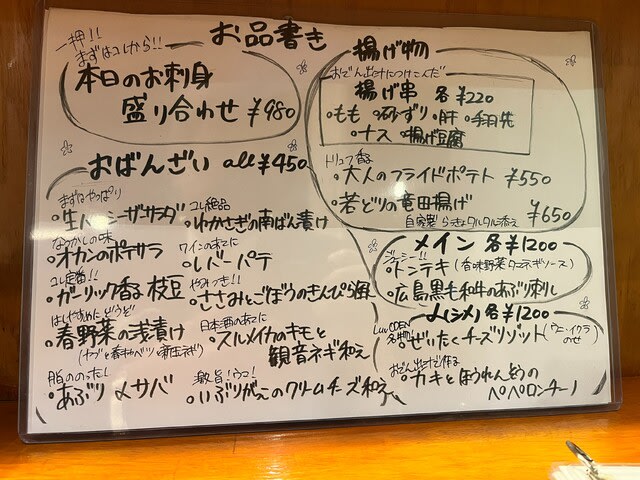 お品書き
一押!!
まずはコレから!!
本日のお刺身
盛り合わせ ¥980
おばんざい all¥450
まずはやっぱり
・生ハムシーザーサラダ
なつかしの味
・オカンのポテサラ
コレ定番!!
・ガーリック香る枝豆
・春野菜の浅漬け
脂ののった!
・あぶり〆サバ
コレ絶品
・わかさぎの南ばん漬け
ワインのあてに
・レバーパテ
やみつき!!
・ささみとごぼうのきんぴら風
日本酒のあてに
・スルメイカのキモと
観音ネギ和え
激旨!ウコ!
・いぶりがっこのクリームチーズ和え
揚げ物
おでん出汁につけこんだ
揚げ串 各¥220
・もも ・砂ずり ・肝 ・手羽先
・ナス ・揚げ豆腐
トリュフ香る
・大人のフライドポテト ¥550
・若どりの竜田揚げ
自家製 らっきょタルタル添え ¥650
メイン 各¥1200
ジューシー!!
・トンテキ (香味野菜タマネギソース)
・広島黒毛和牛のあぶり刺し
〆(シメ) 各¥1200
名物
・ぜいたくチーズリゾット (ウニ・イクラのせ)
おでん出汁で作る
・カキとほうれんそうの
ペペロンチーノ